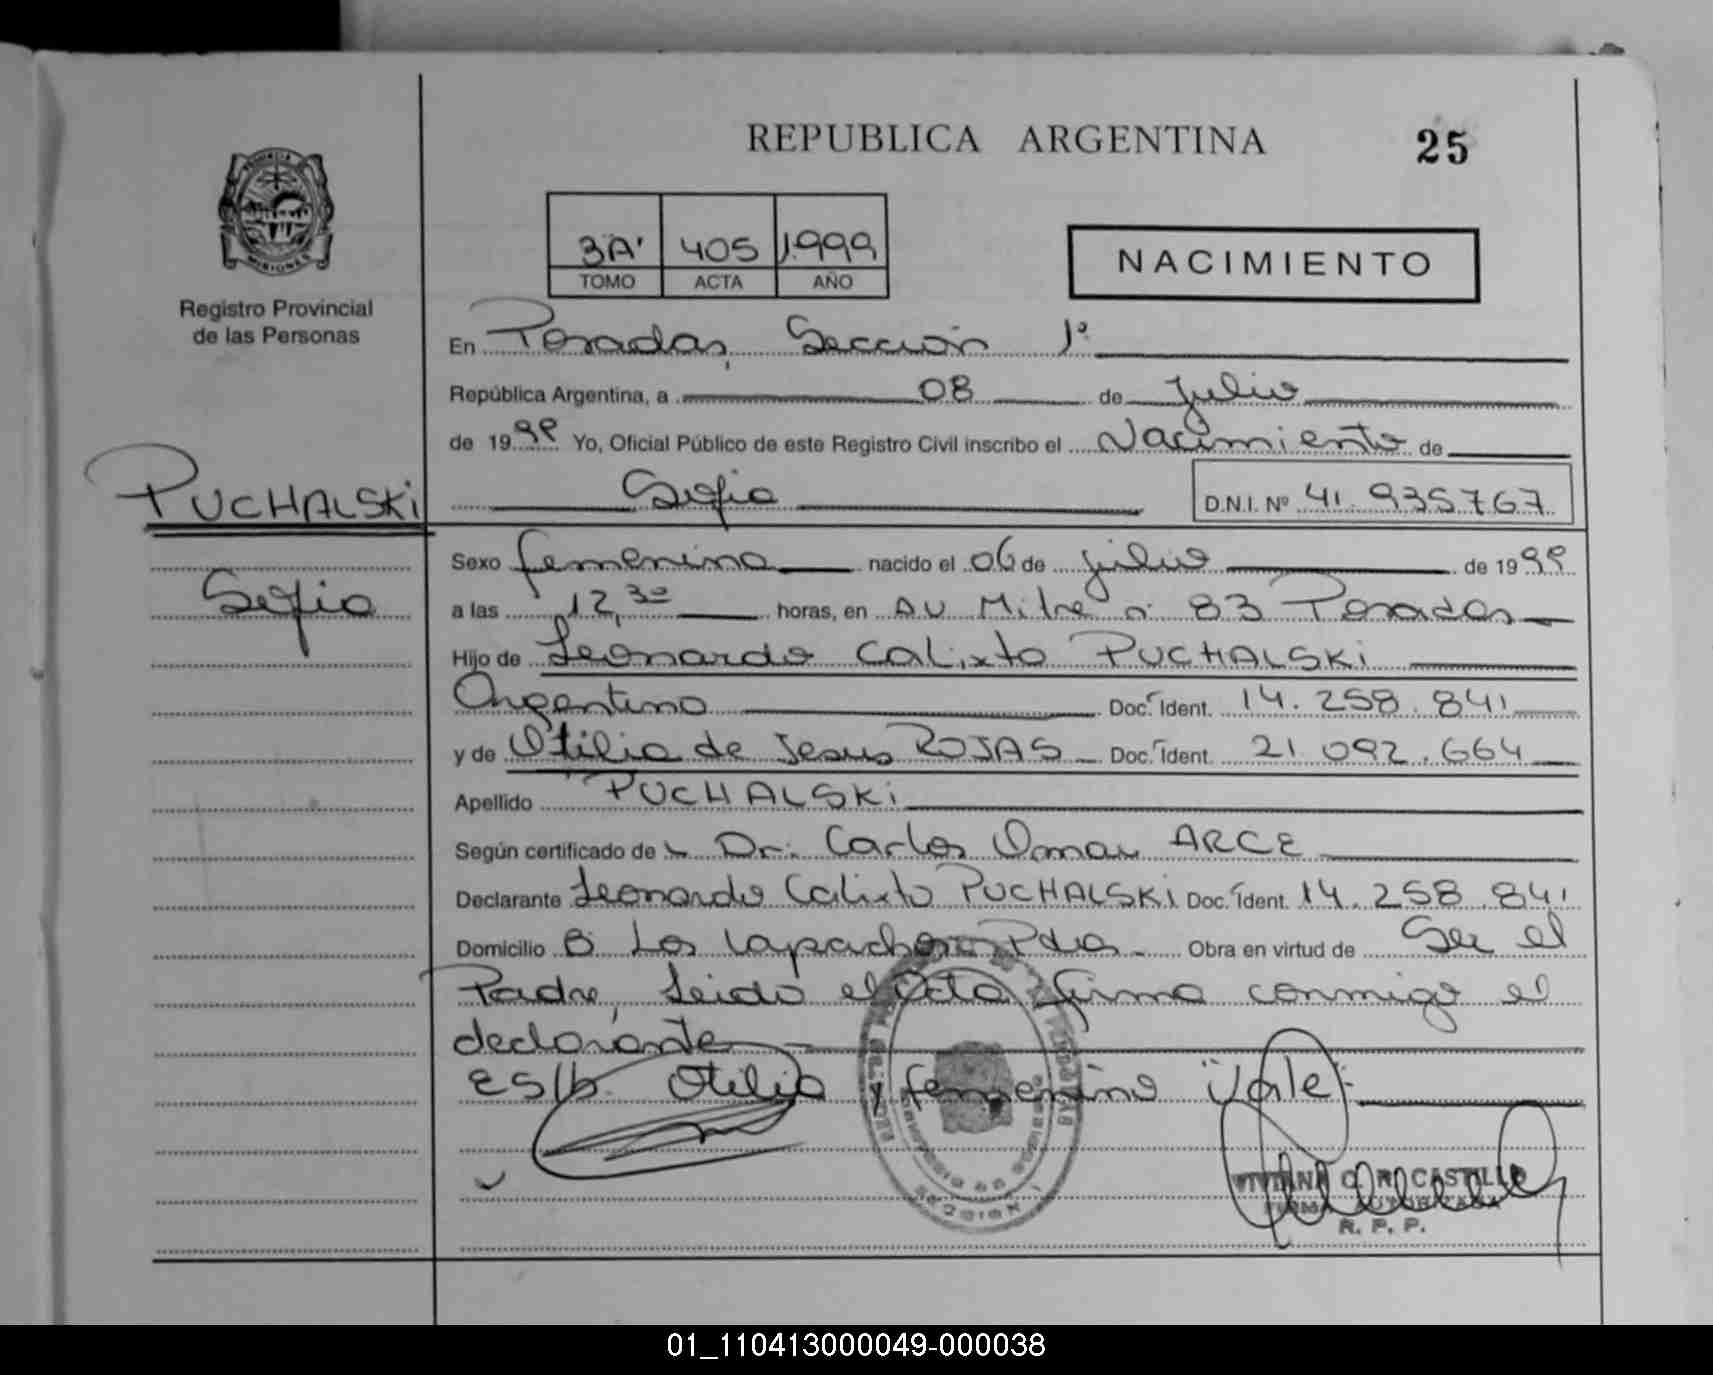 REPUBLICA ARGENTINA
25
PROVINCIA
MISIONES
Registro Provincial
de las Personas
3"A" 405 1.999
TOMO ACTA AÑO
NACIMIENTO
En Posadas, Sección 1ª
República Argentina, a 08 de Julio
de 1999 Yo, Oficial Público de este Registro Civil inscribo el Nacimiento de
Sofia D.N.I. Nº 41.935767
PUCHALSKi
Sofia
Sexo femenino nacido el 06 de julio de 1999
a las 12,30 horas, en Av Mitre nº 83 Posadas
Hijo de Leonardo Calixto PUCHALSKi
Argentino Doc. Ident. 14.258.841
y de Otilia de Jesus ROJAS Doc. Ident. 21.092.664
Apellido PUCHALSKi
Según certificado de Dr. Carlos Omar ARCE
Declarante Leonardo Calixto PUCHALSKi Doc. Ident. 14.258.841
Domicilio Bº Los Lapachos Pdas Obra en virtud de Ser el
Padre, Leido el Acta firma conmigo el
declarante
ES/b. Otilia y femenino "Vale"
VIVIANA C. R. CASTILLO
FIRMA AUTORIZADA
R. P. P.
01_110413000049-000038